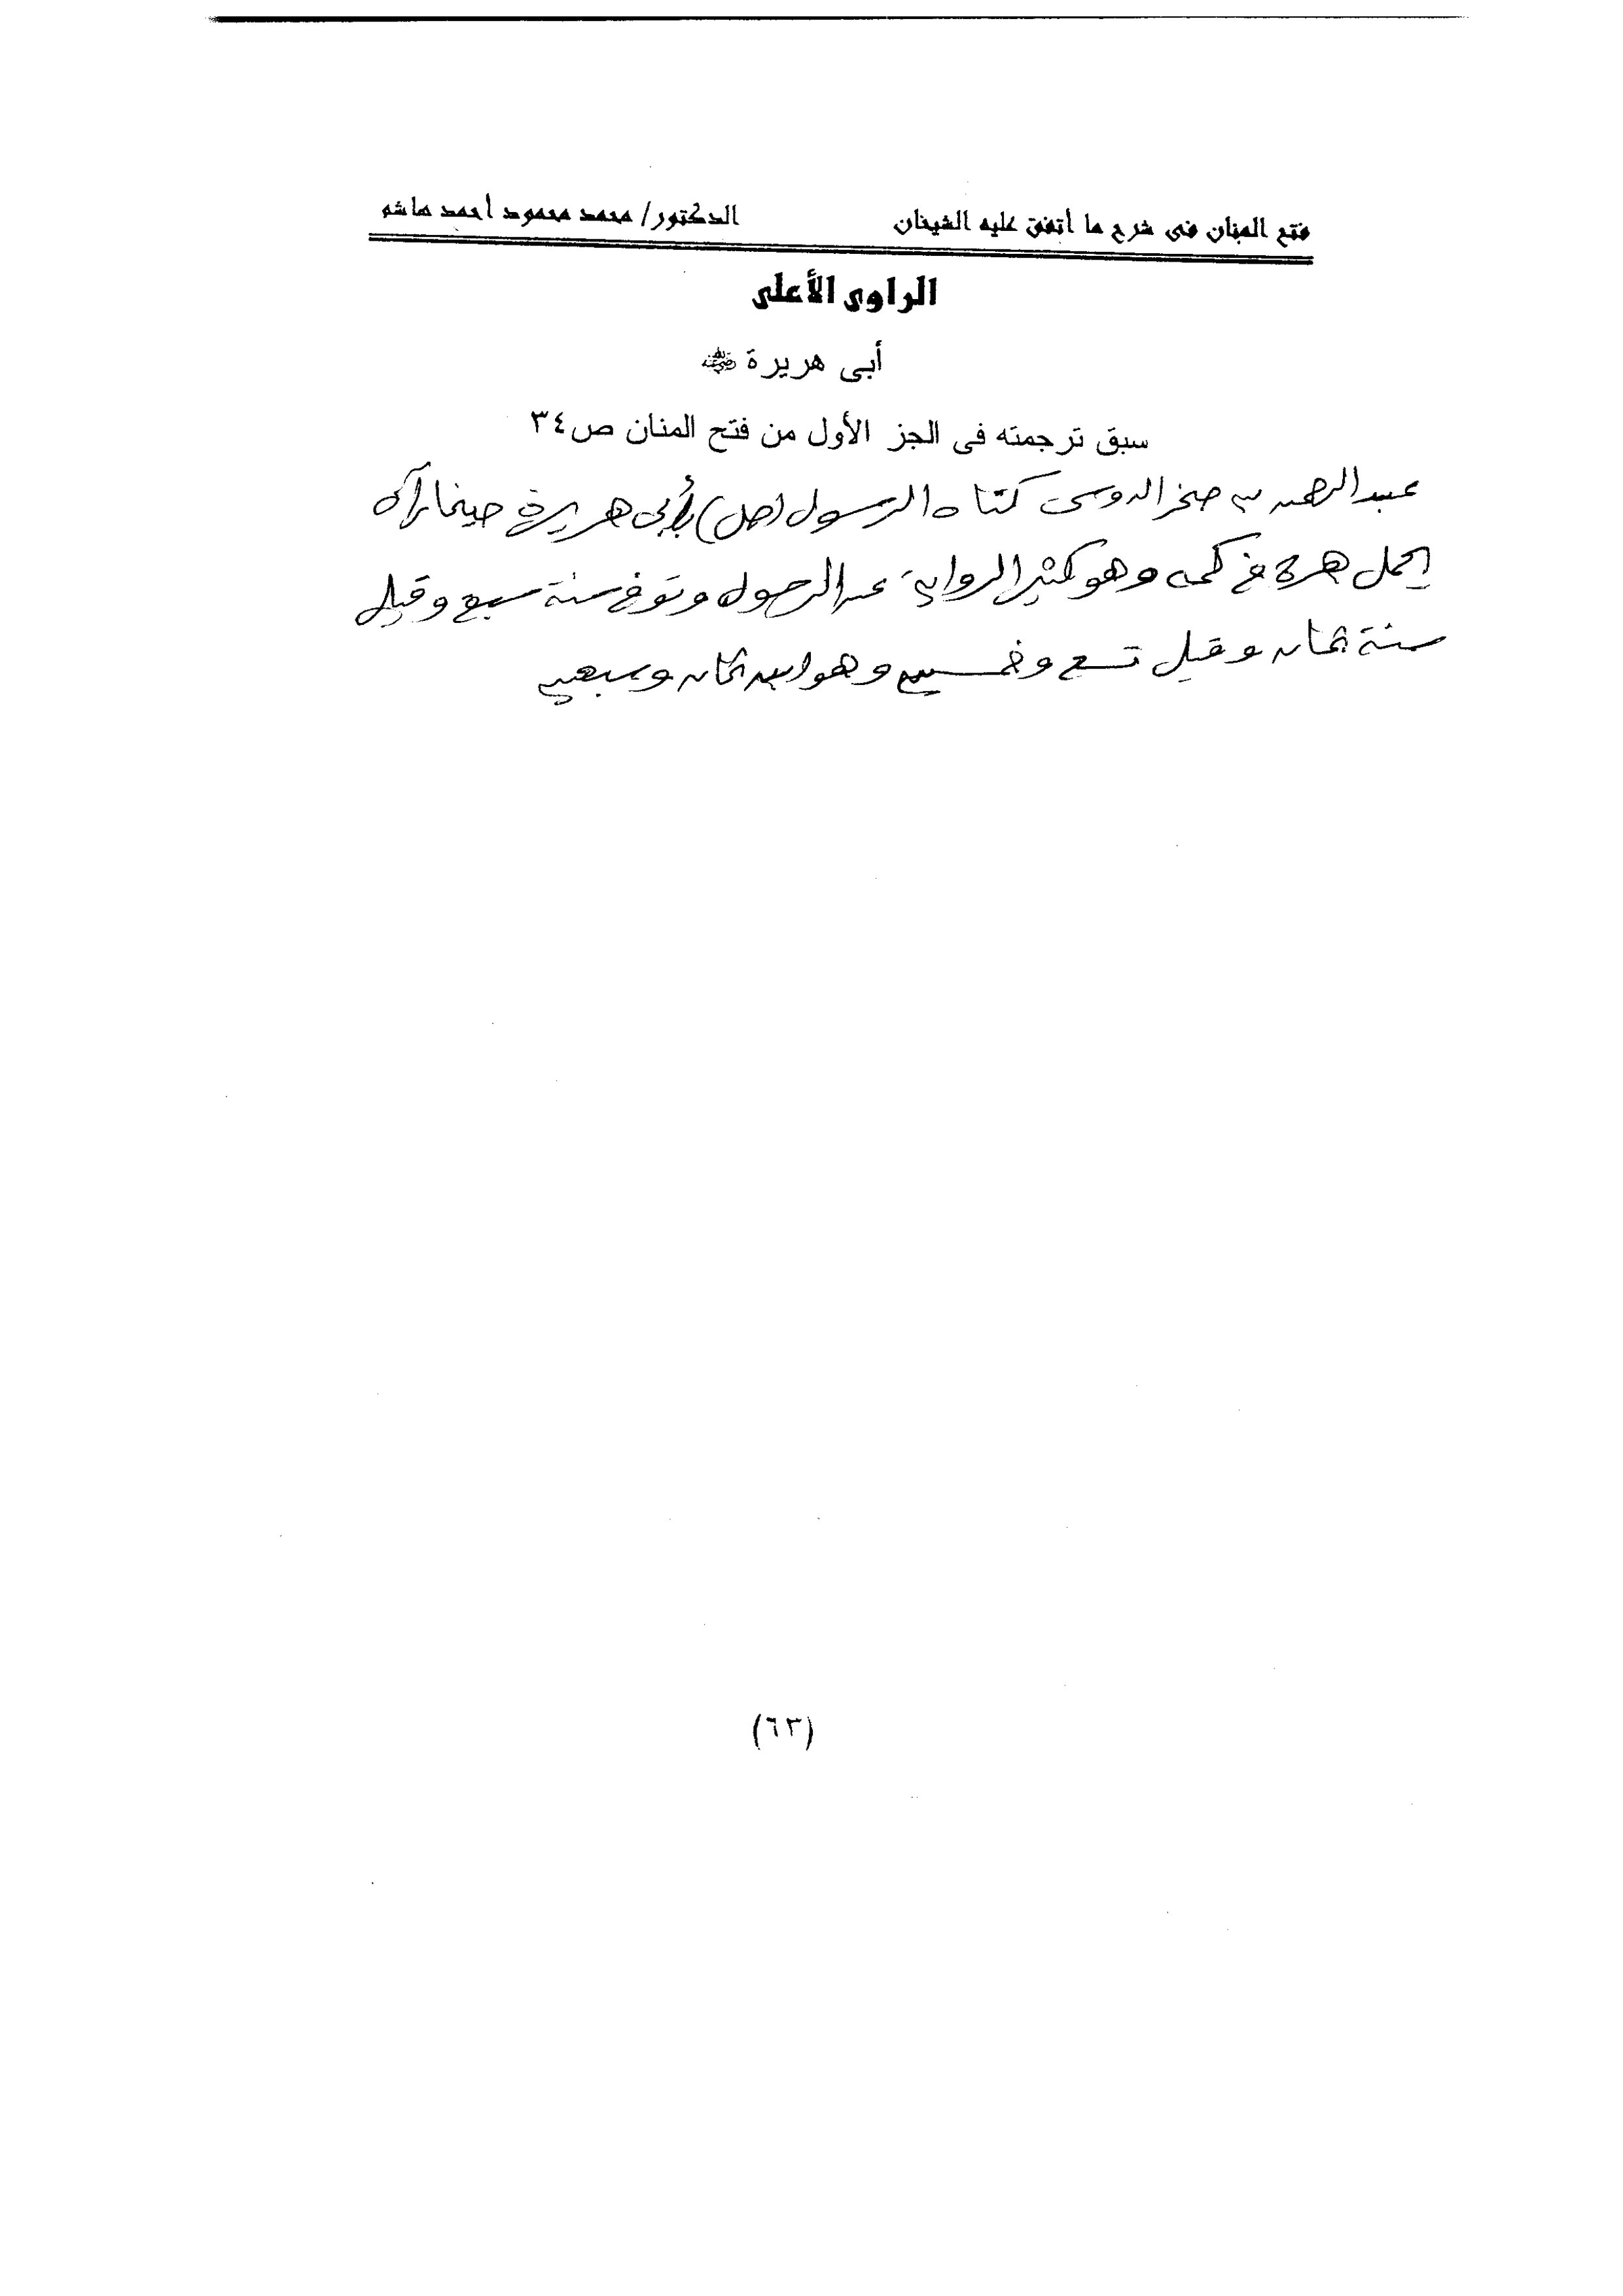 فتح المنان فى شرح ما أتفق عليه الشيخان الدكتور/ محمد محمود أحمد هاشم
الراوى الأعلى
أبى هريرة ﵁
سبق ترجمته فى الجز الأول من فتح المنان ص٣٤
عبد الرحمن بن صخر الدوسى كناه الرسول (صل) بأبى هريرة حينما رآه
يحمل هرة فى كمه وهو كثير الرواية عن الرسول وتوفى سنة سبع وقيل
سنة ثمان وقيل تسع وخمسين وهو ابن ثمان وسبعين
(٦٣)